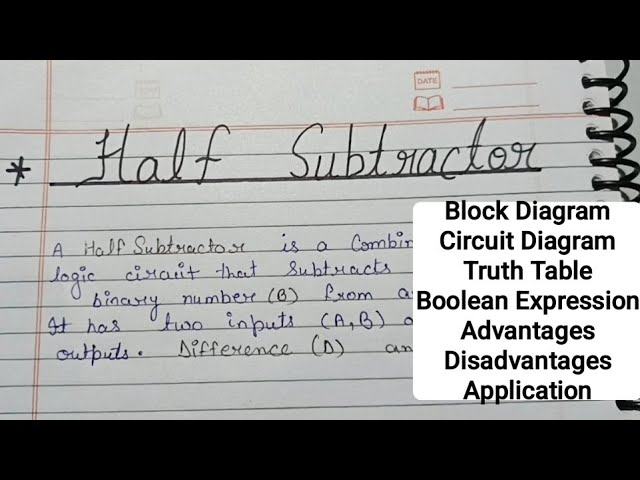 DATE
* Half Subtractor
A Half Subtractor is a Combin
logic circuit that Subtracts
binary number (B) from a
It has two inputs (A,B)
outputs. Difference (D) an
Block Diagram
Circuit Diagram
Truth Table
Boolean Expression
Advantages
Disadvantages
Application